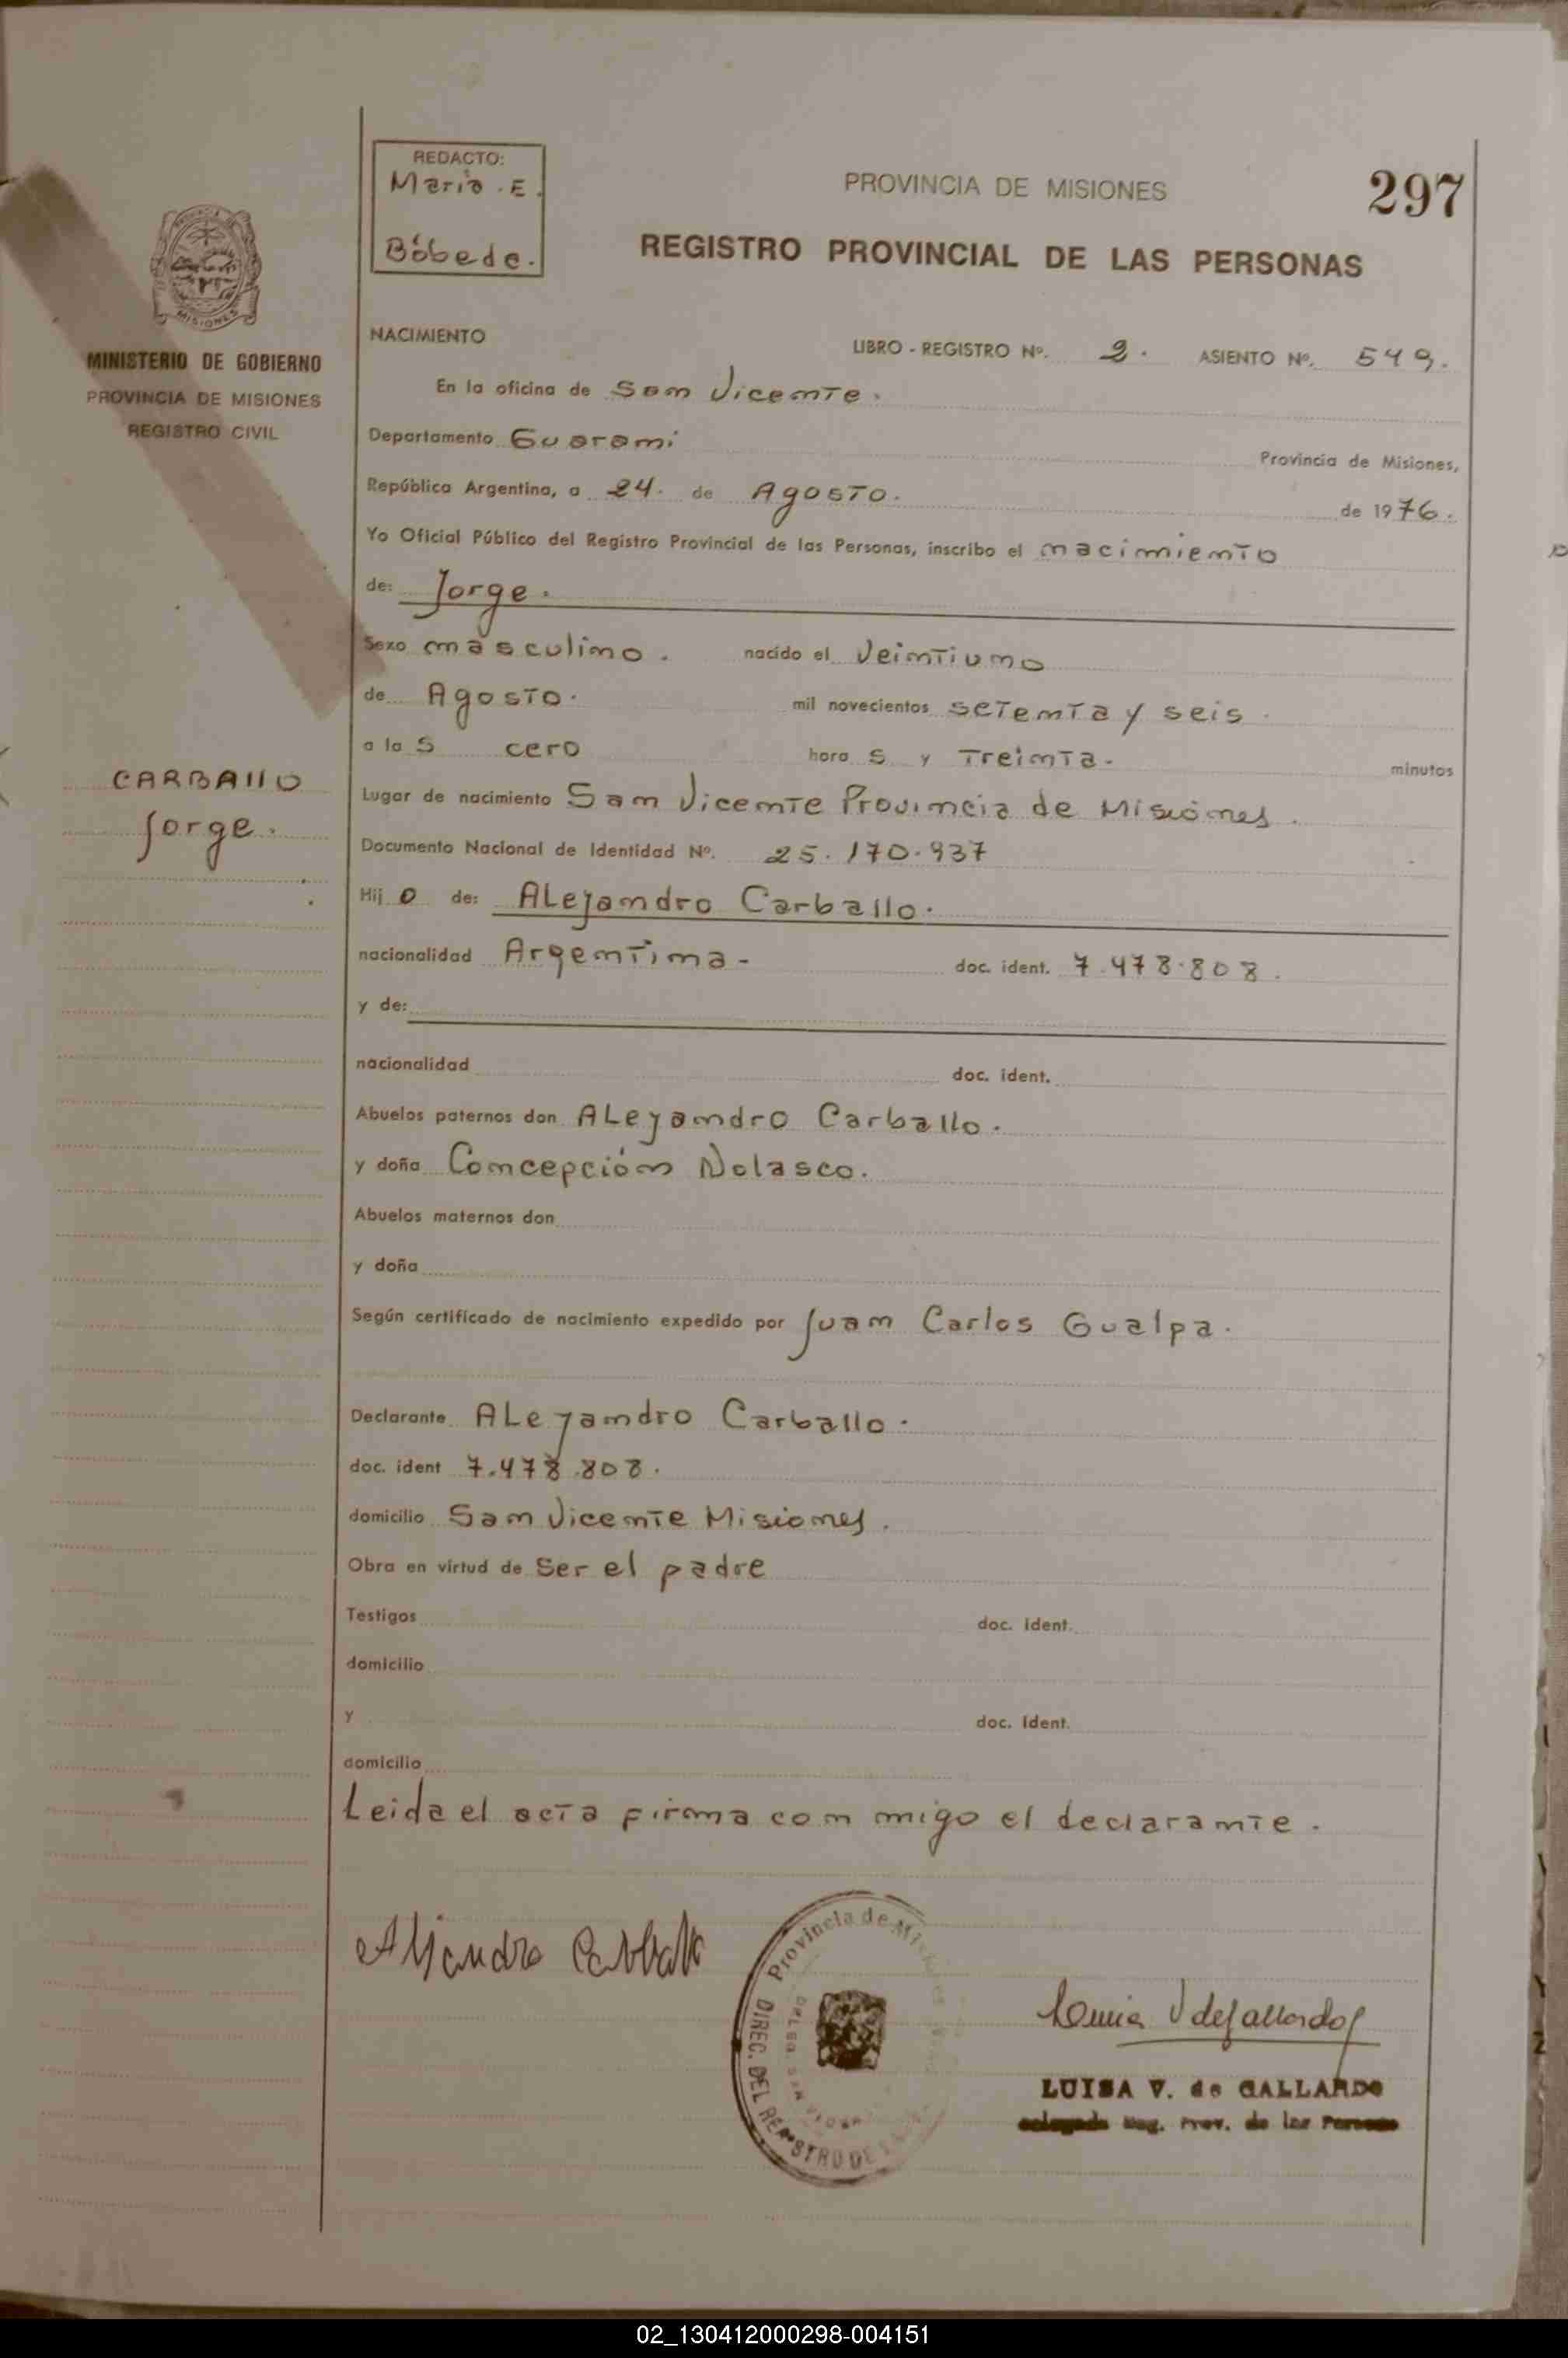 REDACTO:
Maria . E.
Bóbede.
PROVINCIA DE MISIONES
297
REGISTRO PROVINCIAL DE LAS PERSONAS
MISIONES
MINISTERIO DE GOBIERNO
PROVINCIA DE MISIONES
REGISTRO CIVIL
NACIMIENTO
LIBRO - REGISTRO Nº. 2. ASIENTO Nº. 549.
En la oficina de San Vicente.
Departamento Guarani Provincia de Misiones,
República Argentina, a 24. de Agosto. de 1976.
Yo Oficial Público del Registro Provincial de las Personas, inscribo el nacimiento
de: Jorge.
Sexo masculino. nacido el Veintiuno
de Agosto. mil novecientos setenta y seis.
a las cero horas y Treinta- minutos
CARBAllO
Jorge.
Lugar de nacimiento San Vicente Provincia de Misiones.
Documento Nacional de Identidad Nº. 25.170.937
Hijo de: ALejandro Carballo.
nacionalidad Argentina- doc. ident. 7.478.808.
y de:
nacionalidad doc. ident.
Abuelos paternos don ALejandro Carballo.
y doña Concepción Nolasco.
Abuelos maternos don
y doña
Según certificado de nacimiento expedido por Juan Carlos Gualpa.
Declarante ALejandro Carballo.
doc. ident 7.478.808.
domicilio San Vicente Misiones.
Obra en virtud de Ser el padre
Testigos doc. ident.
domicilio
y doc. ident.
domicilio
Leida el acta firma con migo el declarante.
Alejandro Carballo
Provincia de Misiones
DIREC. DEL REGISTRO DE
Luisa V de Gallardo
LUISA V. de GALLARDO
Reg. Prov. de las Personas
02_130412000298-004151